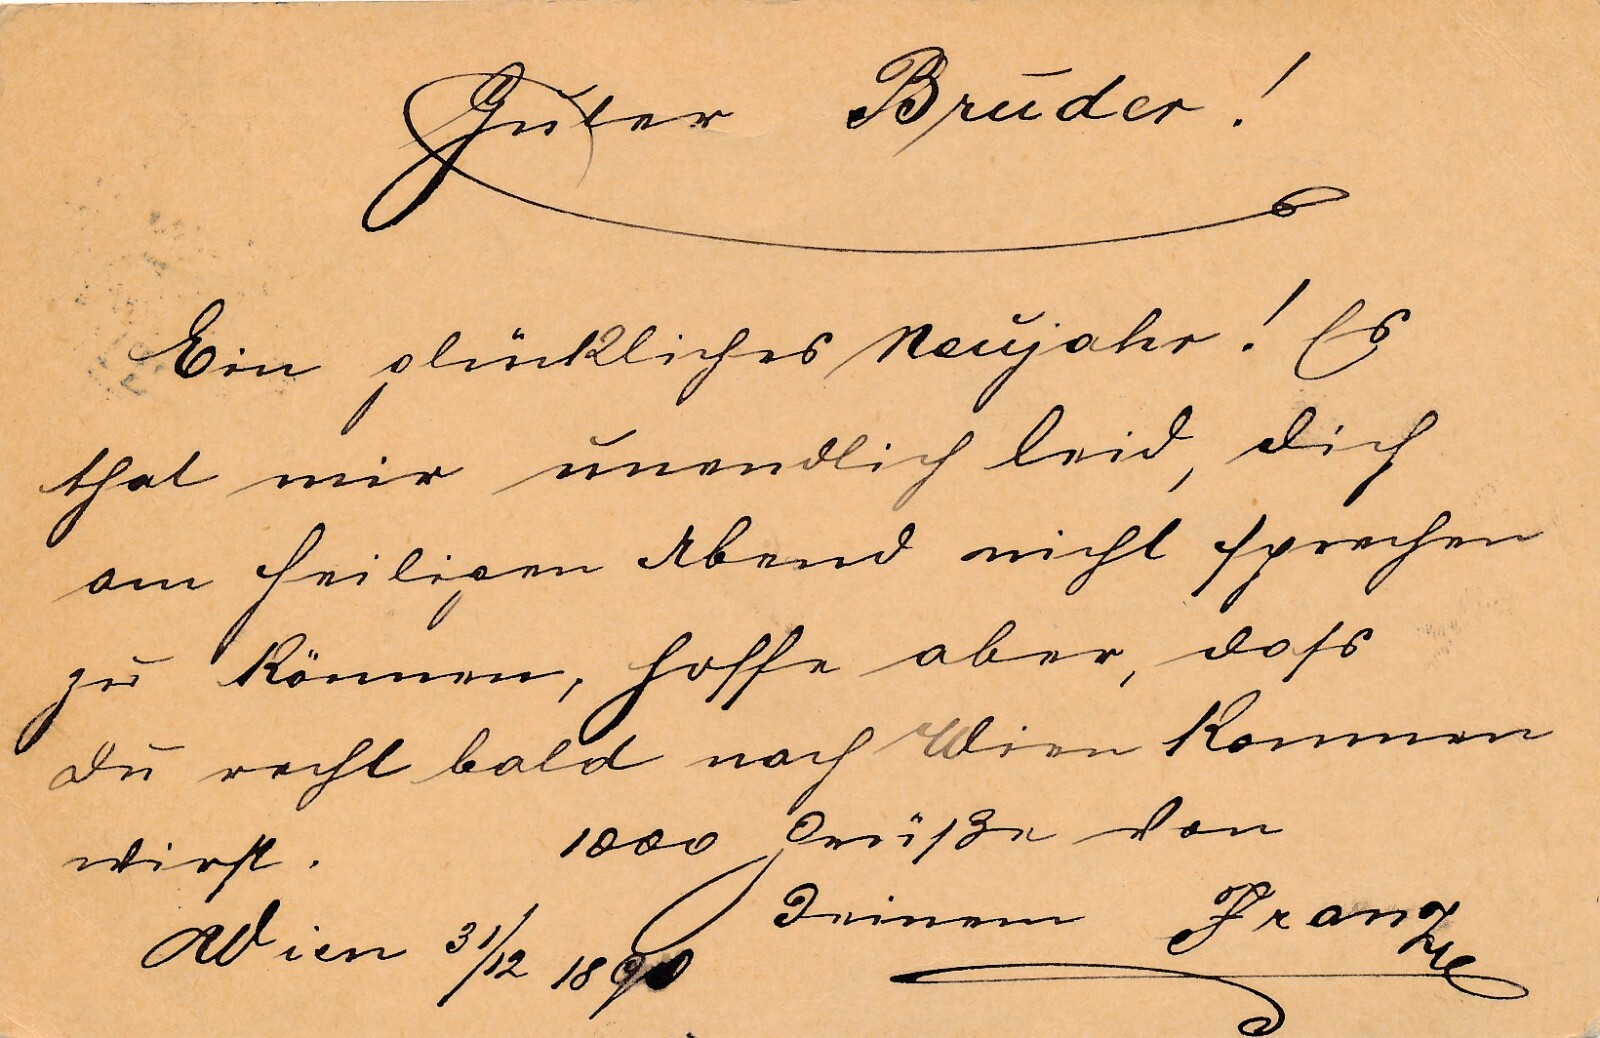 Guter Bruder!
Ein glückliches Neujahr! Es
that mir unendlich leid, Dich
am heiligen Abend nicht sprechen
zu können, hoffe aber, dass
Du recht bald nach Wien kommen
wirst. 1000 Grüße von
Deinem Franz
Wien 31/12 1890